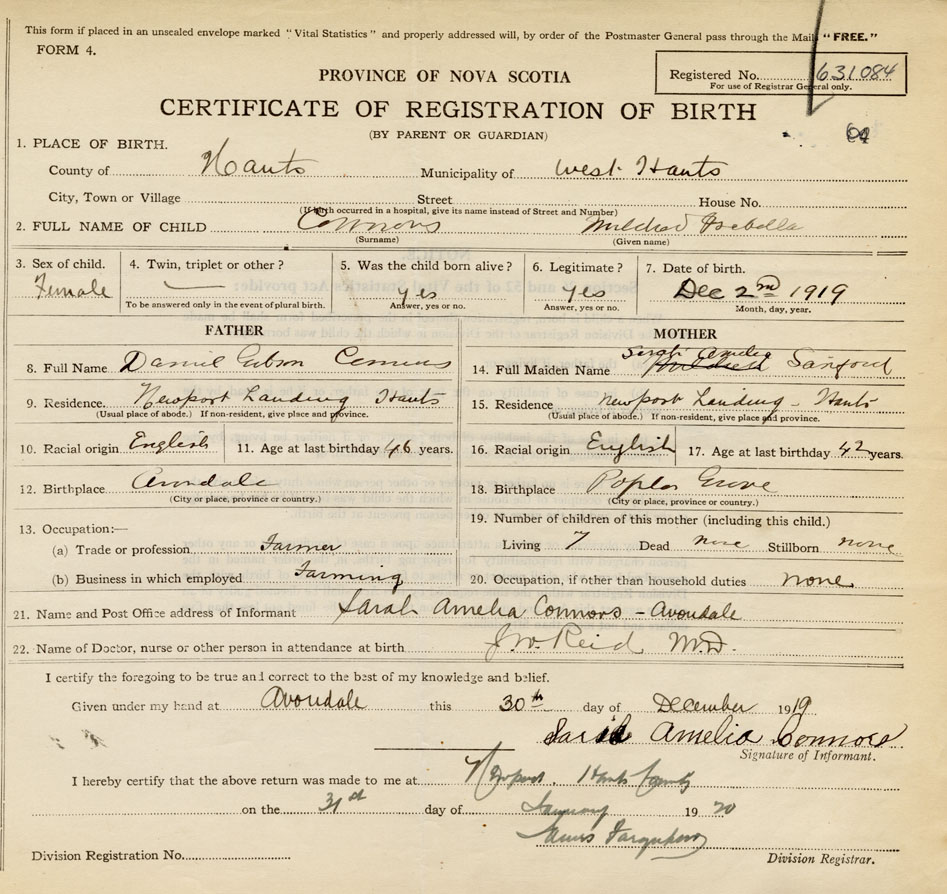 This form if placed in an unsealed envelope marked "Vital Statistics" and properly addressed will, by order of the Postmaster General pass through the Mail "FREE."
FORM 4.
PROVINCE OF NOVA SCOTIA
Registered No. 631084
For use of Registrar General only.
CERTIFICATE OF REGISTRATION OF BIRTH
(BY PARENT OR GUARDIAN)
1. PLACE OF BIRTH.
County of Hants Municipality of West Hants
City, Town or Village Street House No.
(If birth occurred in a hospital, give its name instead of Street and Number)
2. FULL NAME OF CHILD Connors Mildred Isabella
(Surname) (Given name)
3. Sex of child. 4. Twin, triplet or other? 5. Was the child born alive? 6. Legitimate? 7. Date of birth.
Female yes yes Dec 2nd 1919
To be answered only in the event of plural birth. Answer, yes or no. Answer, yes or no. Month, day, year.
FATHER MOTHER
8. Full Name Daniel Connors
14. Full Maiden Name Sarah Amelia Sanford
9. Residence Newport Landing Hants
(Usual place of abode.) If non-resident, give place and province.
15. Residence Newport Landing - Hants
(Usual place of abode.) If non-resident, give place and province.
10. Racial origin English 11. Age at last birthday 46 years.
16. Racial origin English 17. Age at last birthday 42 years.
12. Birthplace Avondale
(City or place, province or country.)
18. Birthplace Poplar Grove
(City or place, province or country.)
13. Occupation:—
(a) Trade or profession Farmer
(b) Business in which employed Farming
19. Number of children of this mother (including this child.)
Living 7 Dead none Stillborn none
20. Occupation, if other than household duties none
21. Name and Post Office address of Informant Sarah Amelia Connors - Avondale
22. Name of Doctor, nurse or other person in attendance at birth J.W. Reid M.D.
I certify the foregoing to be true and correct to the best of my knowledge and belief.
Given under my hand at Avondale this 30th day of December 1919
Sarah Amelia Connors
Signature of Informant.
I hereby certify that the above return was made to me at Newport Hants County
on the 31st day of January 1920
James Farquhar
Division Registration No. Division Registrar.